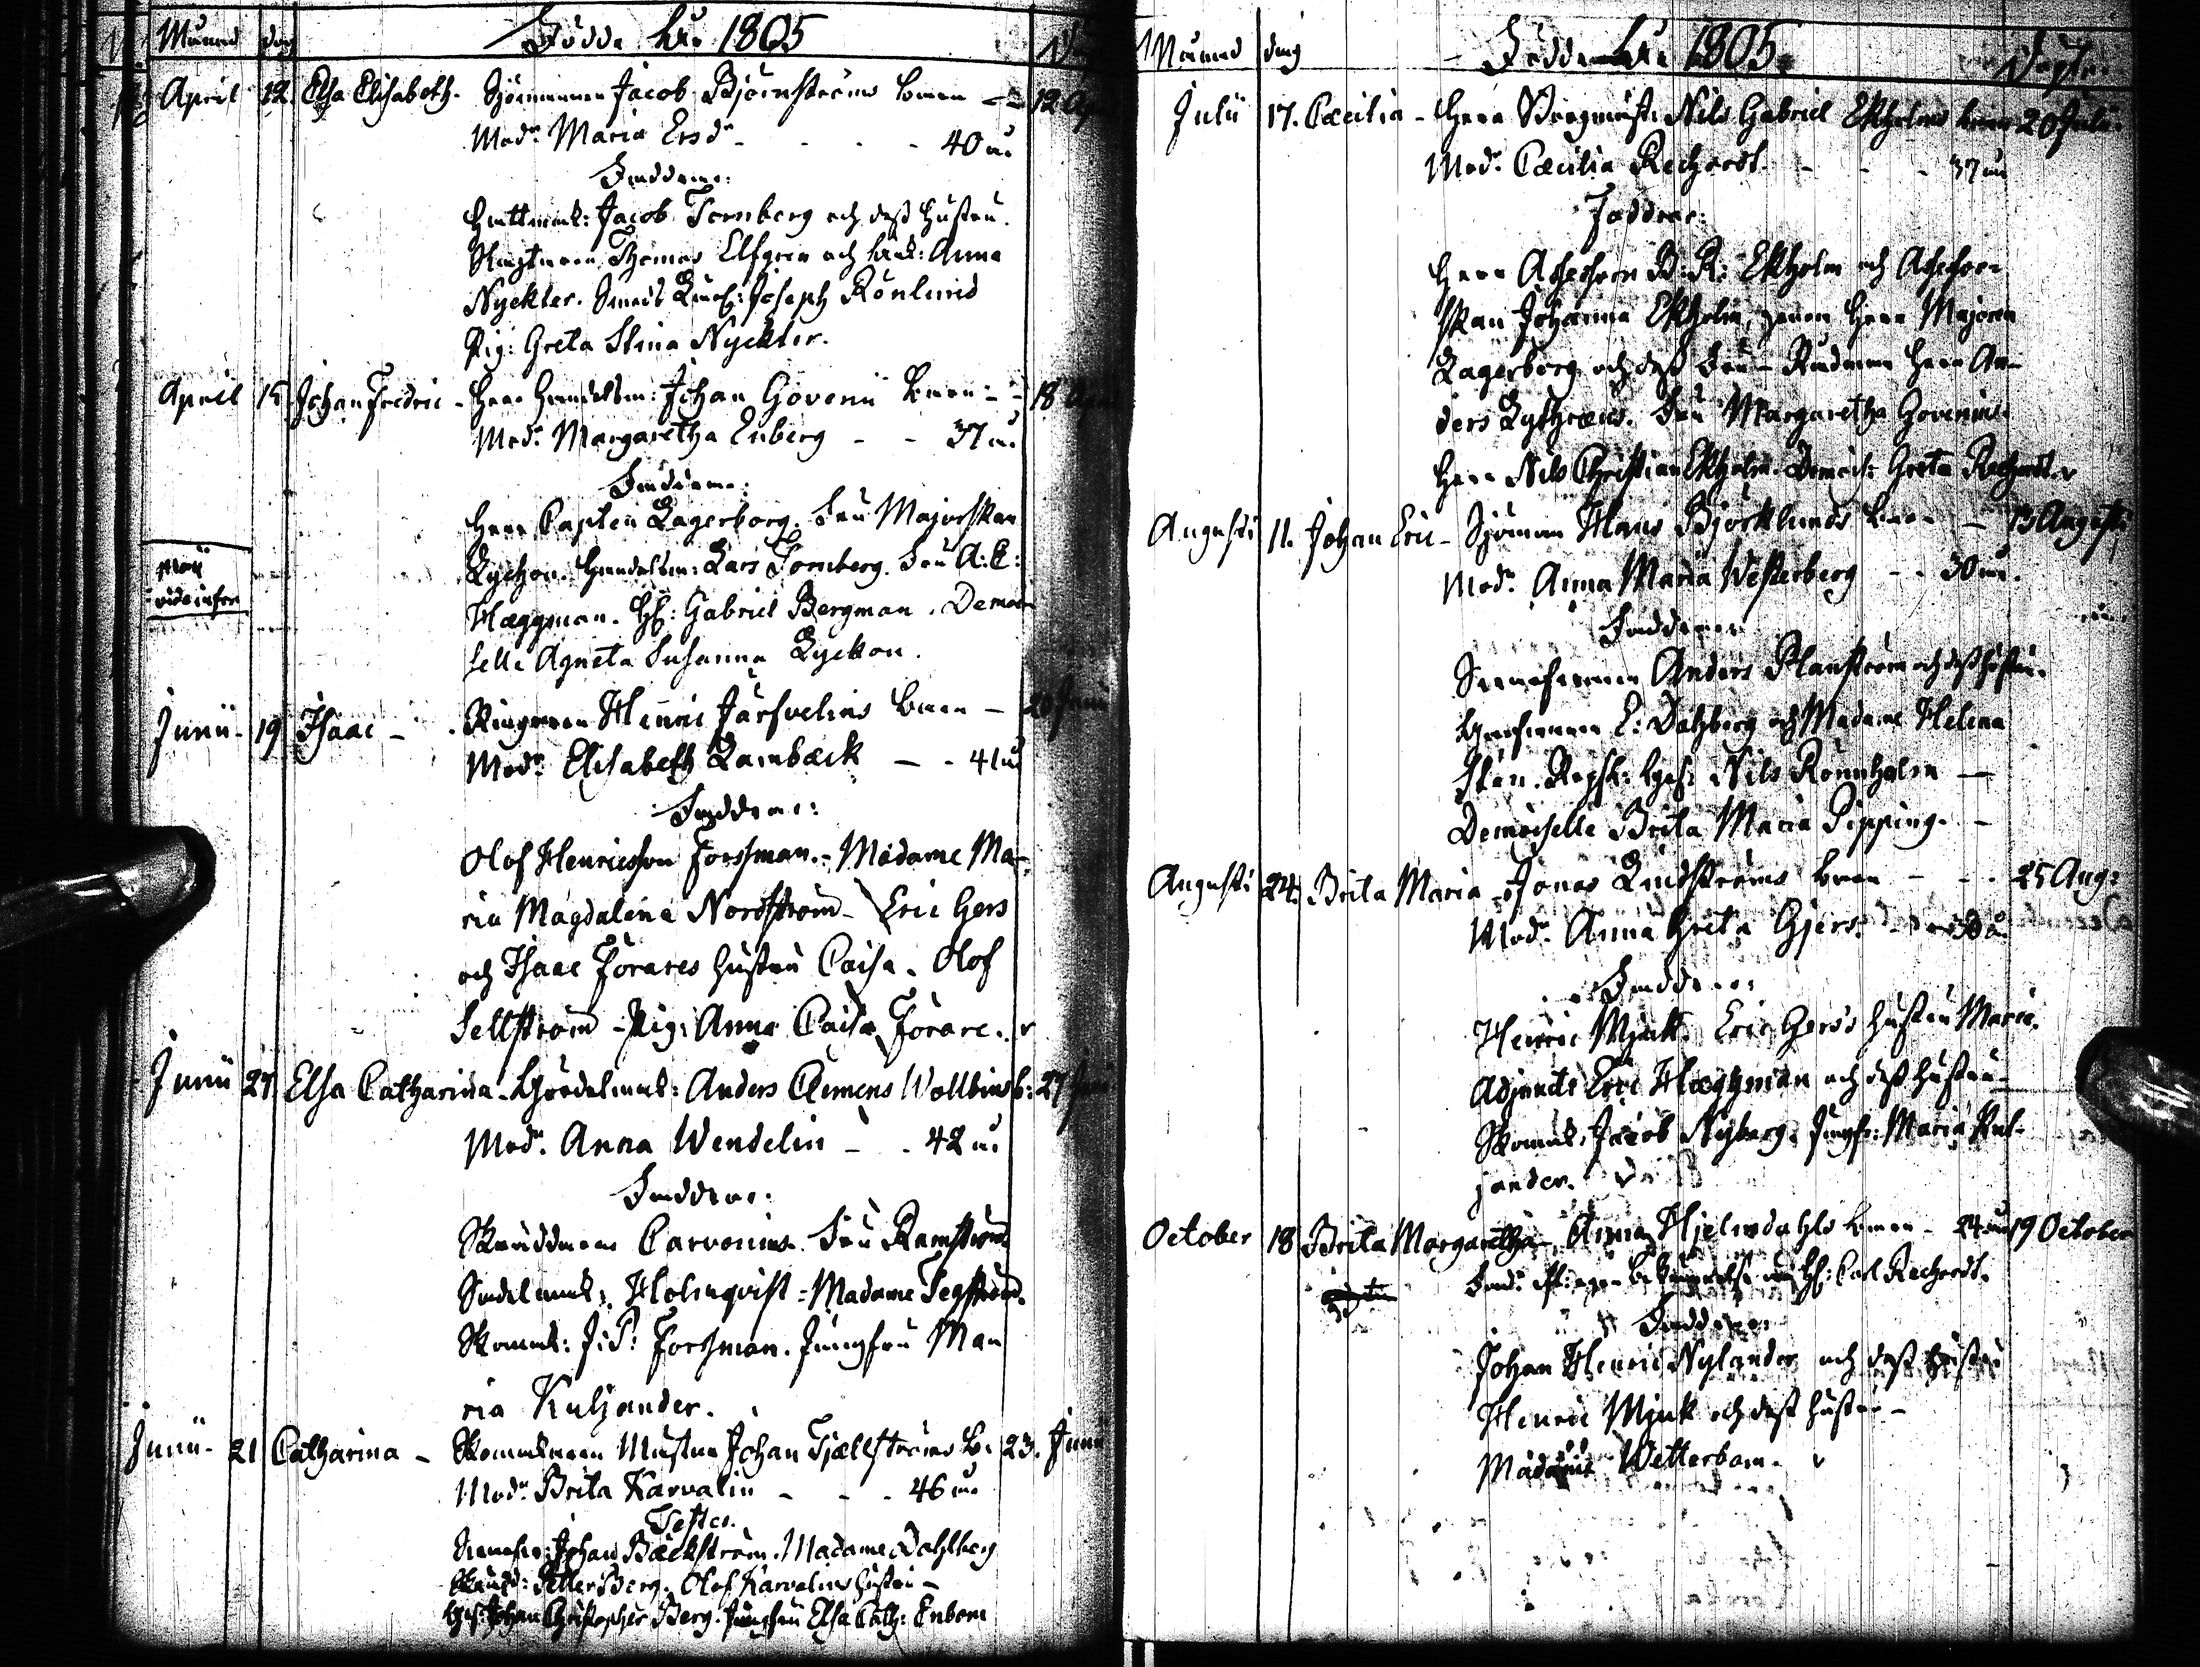 Månad dag Födde åhr 1805
April 12. Elsa Elisabeth. Sjömannen Jacob Björnströms barn 12 Ap
Mod:r Maria Ersd:r - - - - 40 år
Faddrar:
Hattmak: Jacob Tornberg och dess hustru.
Thomas Elfgren och Anna
Nyckter. Joseph Rönlund
Pig: Greta Stina Nyckter.
April 15 Johan Fredric - Herr Handelsm: Johan Govenii barn - 18 Ap
Mod:r Margaretha Enberg - - 37 år
Faddrar:
Herr Captein Lagerborg. Fru Majorskan
Lyckon. Handelsm: Lars Tornberg. Fru A: C:
Hæggman. Hf: Gabriel Bergman. Demoi
selle Agneta Susanna Lyckon.
Maij
vide infra
Junii - 19 Isaac - Ringaren Henric Järfvelins barn - 20 Junii
Mod:r Elisabeth Lamback - - 41 år
Faddrar:
Olof Henricsson Forssman. - Madame Ma-
ria Magdalena Nordström - Eric Gers
och Isaac Forares hustru Caisa. Olof
Sellström - Pig: Anna Caisa Forare.
Junii 27 Elsa Catharina. Anders Clemens Wollbins b: 27 Junii
Mod:r Anna Wendelin - - 42 år
Faddrar:
Skräddaren Carvonius. Fru Ramström
Sadelmak: Holmqvist - Madame Segström.
Skomak: J: P: Forssman. Jungfru Ma
ria Kuljander.
Junii - 21 Catharina - Skomakaren Mustna Johan Tjællströms b. 23. Junii
Mod:r Brita Karvalin - - - 46 år
Testes.
Johan Bäckström. Madame Dahlberg
Petter Berg. Olof Karvalins hustru -
Johan Christopher Berg. Jungfru Elsa Cath: Enbom
Månad dag Födde åhr 1805 Döpte.
Julii 17. Cæcilia - Herr Borgmäst: Nils Gabriel Ekholms barn 20 Julii.
Mod:r Cæcilia Rechardt. - - - 37 år
Faddrar:
Herr Assessoren B: R: Ekholm och Assesor-
skan Johanna Ekholm, Herr Majoren
Lagerborg och dess Fru - Herr An-
ders Lythræus. Fru Margaretha Govenius.
Herr Nils Christian Ekholm. Demois: Greta Rechardt.
Augusti 11. Johan Eric - Sjöman Hans Björklunds barn - 13 Augusti
Mod:r Anna Maria Westerberg - - 30 år.
Faddrar
Anders Planström och dess hustru.
E: Dahlberg och Madame Helena
Nils Rönnholm -
Demoiselle Brita Maria Pipping. -
Augusti 24. Brita Maria - Jonas Lindströms barn - - - 25 Aug:
Mod:r Anna Greta Gjers.
Faddrar:
Henric Mjuk. Eric Gers's hustru Maria.
Adjunct Eric Hæggman och dess hustru -
Skomak: Jacob Nyberg. Jungfr: Maria Kul-
jander.
October 18 Brita Margaretha - Anna Hjelmdahls barn - 24 år 19 October
Carl Rechardt.
Faddrar:
Johan Henric Nylander och dess hustru
Henric Mjuk och dess hustru -
Madame Wetterbom.